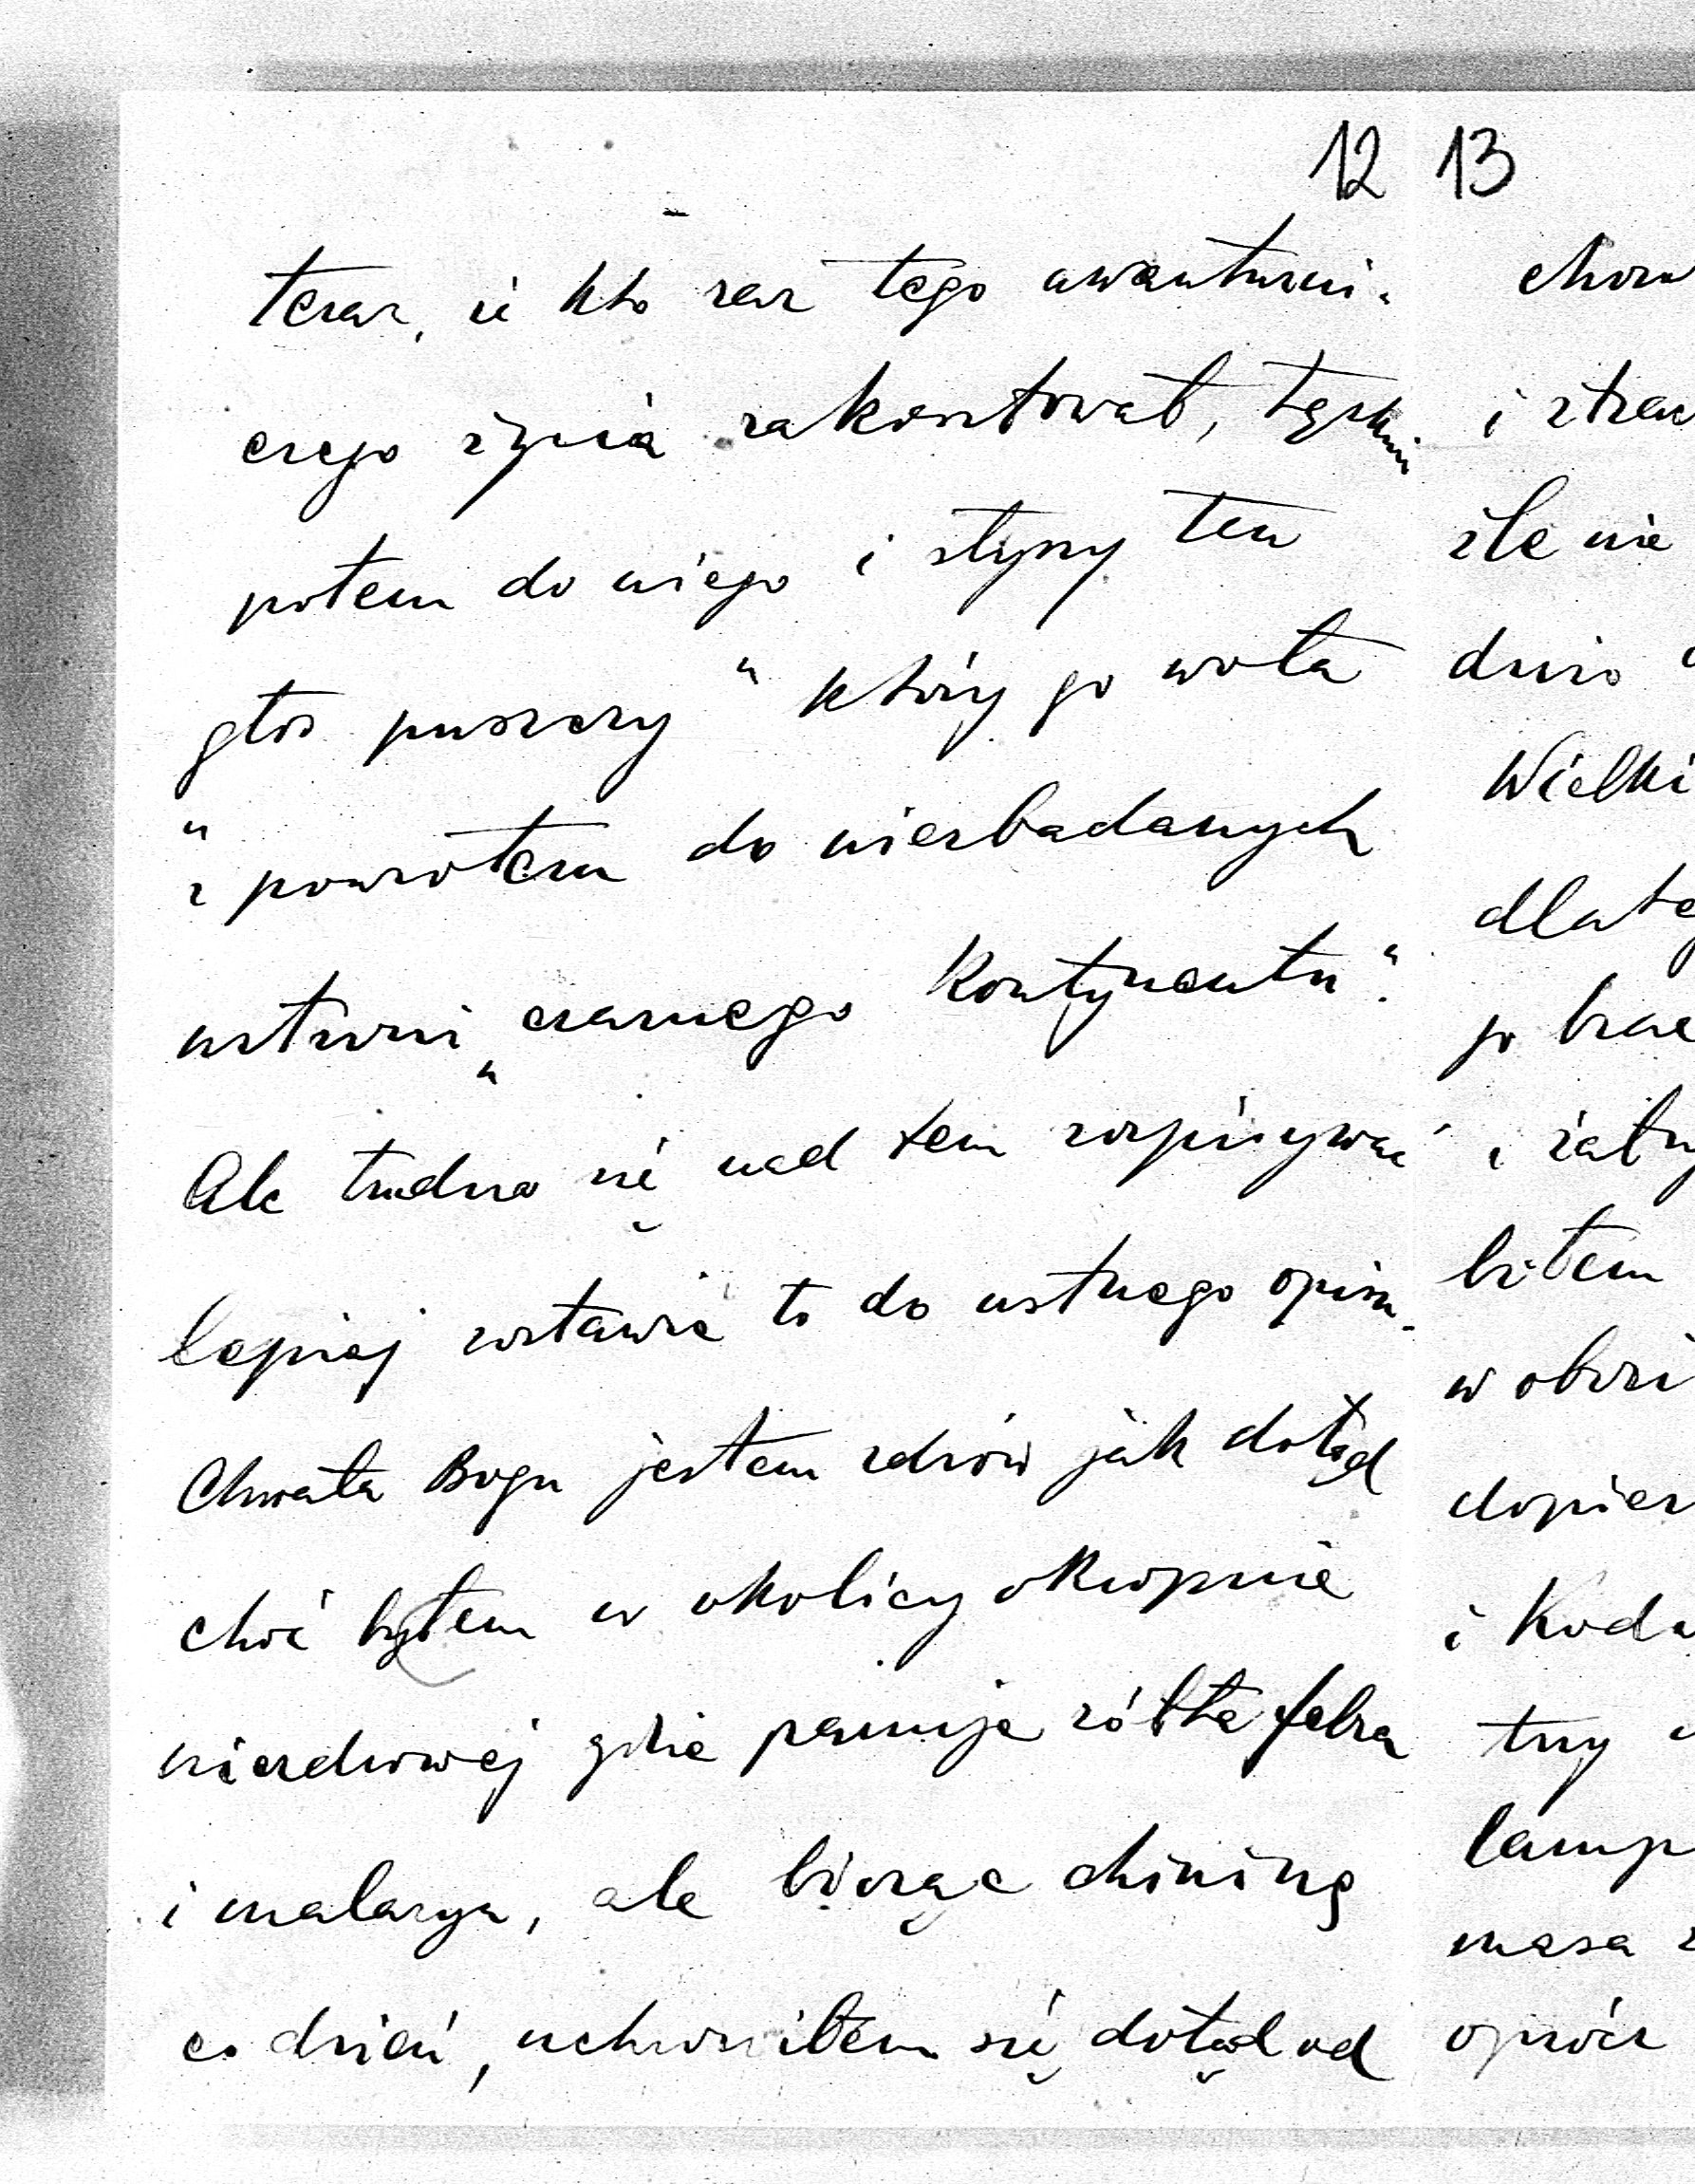 12
teraz, iż kto raz tego awanturni-
czego życia zakosztował, tęskni
potem do niego i słyszy ten
głos puszczy" który go woła
"z powrotem do niezbadanych
ustroni „czarnego Kontynentu".
Ale trudno się nad tem rozpisywać
lepiej zostawić to do ustnego opisu.
Chwała Bogu jestem zdrów jak dotąd
choć byłem w okolicy okropnie
niezdrowej gdzie panuje żółta febra
i malarya, ale biorąc chininę
co dzień, uchroniłem się dotąd od
13
i
źle nie
Wielki
go
i
bitem
w
i
tny
masa
oprócz